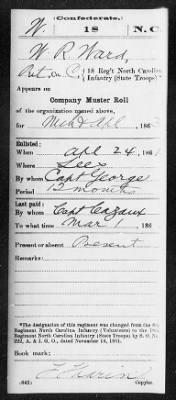 (Confederate.)
W. 18 N.C.
W. R. Ward,
Pvt, Co. C, 18 Reg't North Carolina
Infantry (State Troops)*
Appears on
Company Muster Roll
of the organization named above,
for Mch & Apl, 186
Enlisted:
When Apl 24, 1861
Where
By whom Capt George
Period 12 months
Last paid:
By whom Capt Cazaux
To what time Mar 1, 186
Present or absent Present
Remarks:
*The designation of this regiment was changed from the 8th
Regiment North Carolina Infantry (Volunteers) to the 18th
Regiment North Carolina Infantry (State Troops) by S. O. No.
222, A. & I. G. O., dated November 14, 1861.
Book mark:
(642)
Copyist.